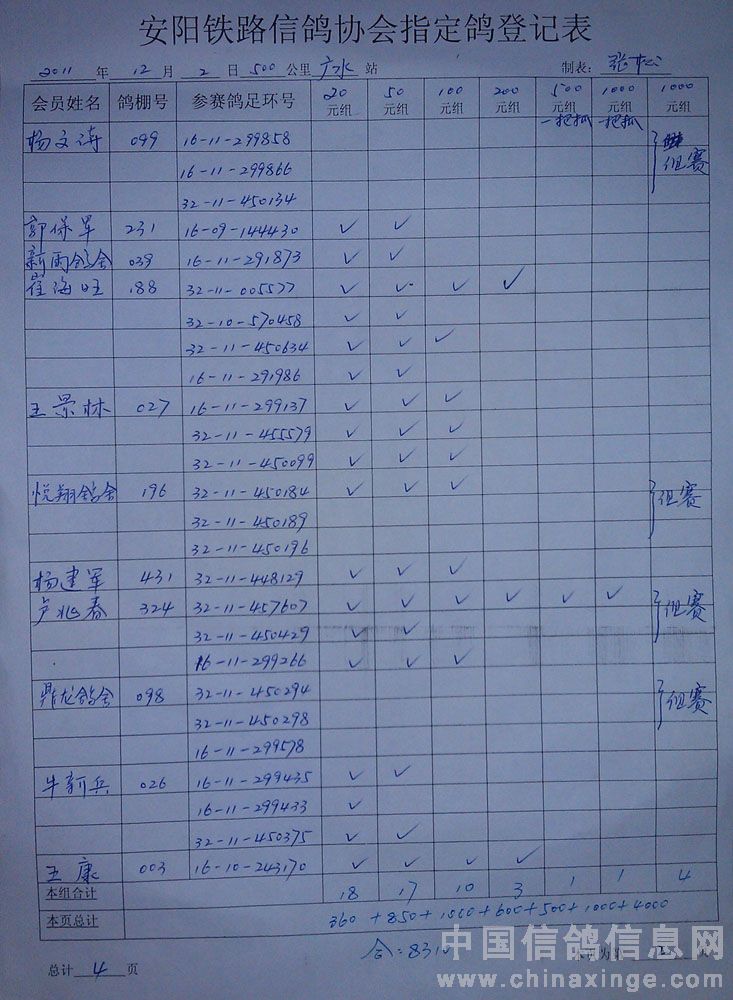 安阳铁路信鸽协会指定鸽登记表
2011 年 12 月 2 日 500 公里 广水 站 制表:
会员姓名 鸽棚号 参赛鸽足环号 20元组 50元组 100元组 200元组 500元组一把抓 1000元组一把抓 1000元组
杨文涛 099 16-11-299858 组赛
16-11-299866
32-11-450134
郭保军 231 16-09-144430 ✓ ✓
新雨鸽舍 039 16-11-291873 ✓ ✓
崔海旺 188 32-11-005577 ✓ ✓ ✓ ✓
32-10-570458 ✓ ✓
32-11-450634 ✓ ✓ ✓
16-11-291986 ✓ ✓
王景林 027 16-11-299137 ✓ ✓ ✓
32-11-455579 ✓ ✓ ✓
32-11-450099 ✓ ✓ ✓
悦翔鸽舍 196 32-11-450184 ✓ ✓ ✓ 组赛
32-11-450189
32-11-450196
杨建军 431 32-11-448129 ✓ ✓ ✓
卢兆春 324 32-11-457607 ✓ ✓ ✓ ✓ ✓ ✓ 组赛
32-11-450429 ✓ ✓
16-11-299266 ✓ ✓ ✓
鼎龙鸽舍 098 32-11-450294 组赛
32-11-450298
16-11-299578
牛新兵 026 16-11-299435 ✓ ✓
16-11-299433 ✓
32-11-450375 ✓ ✓
王康 003 16-10-243170 ✓ ✓ ✓ ✓
本组合计 18 17 10 3 1 1 4
本页总计 360 +850+1000+600+500+1000+4000
合:8310
总计 4 页
中国信鸽信息网
www.chinaxinge.com